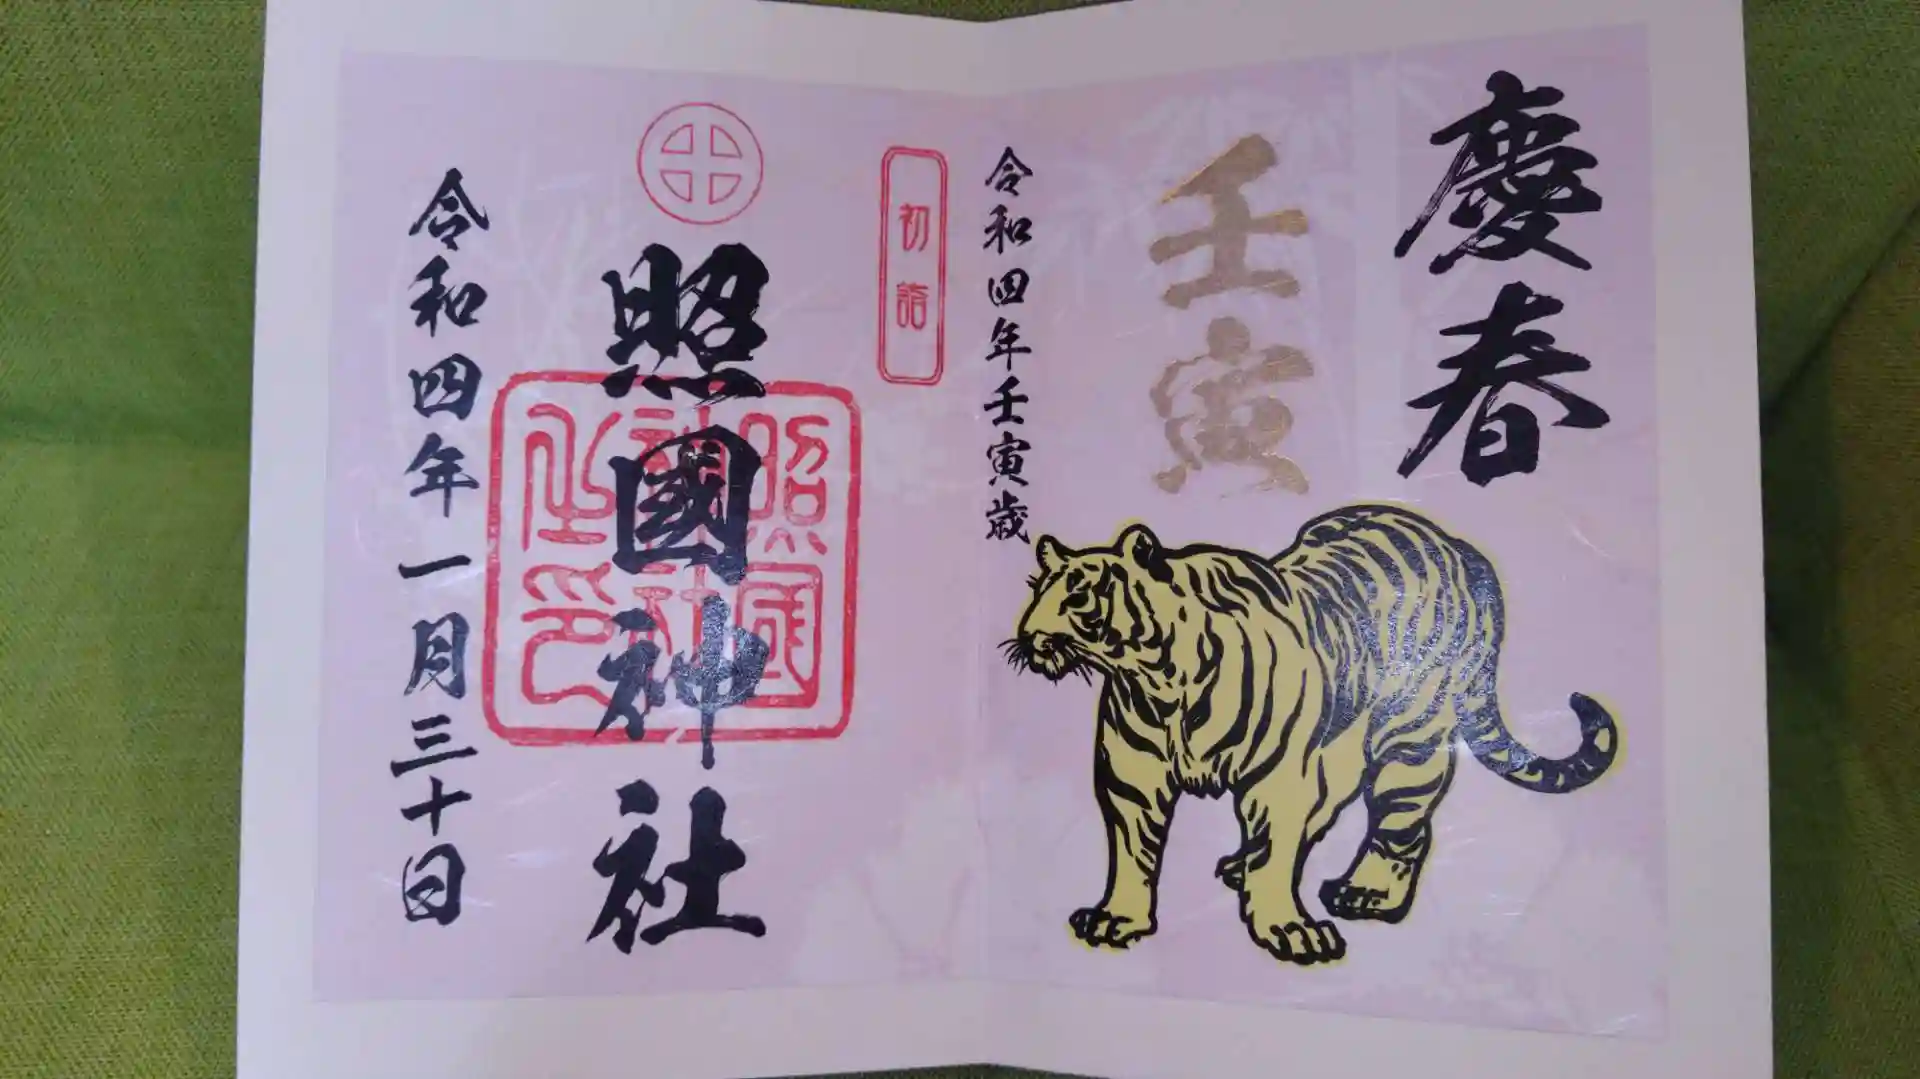 慶春
壬寅
令和四年壬寅歳
初詣
照國神社
照國神社之印
令和四年一月三十日